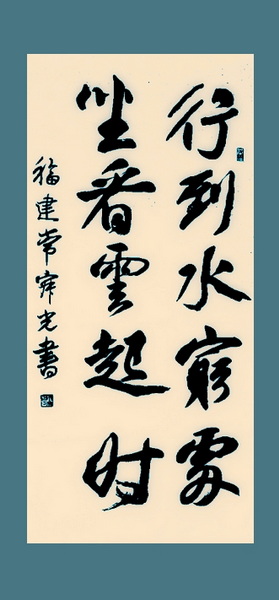 行到水窮處
坐看雲起时
福建常光書